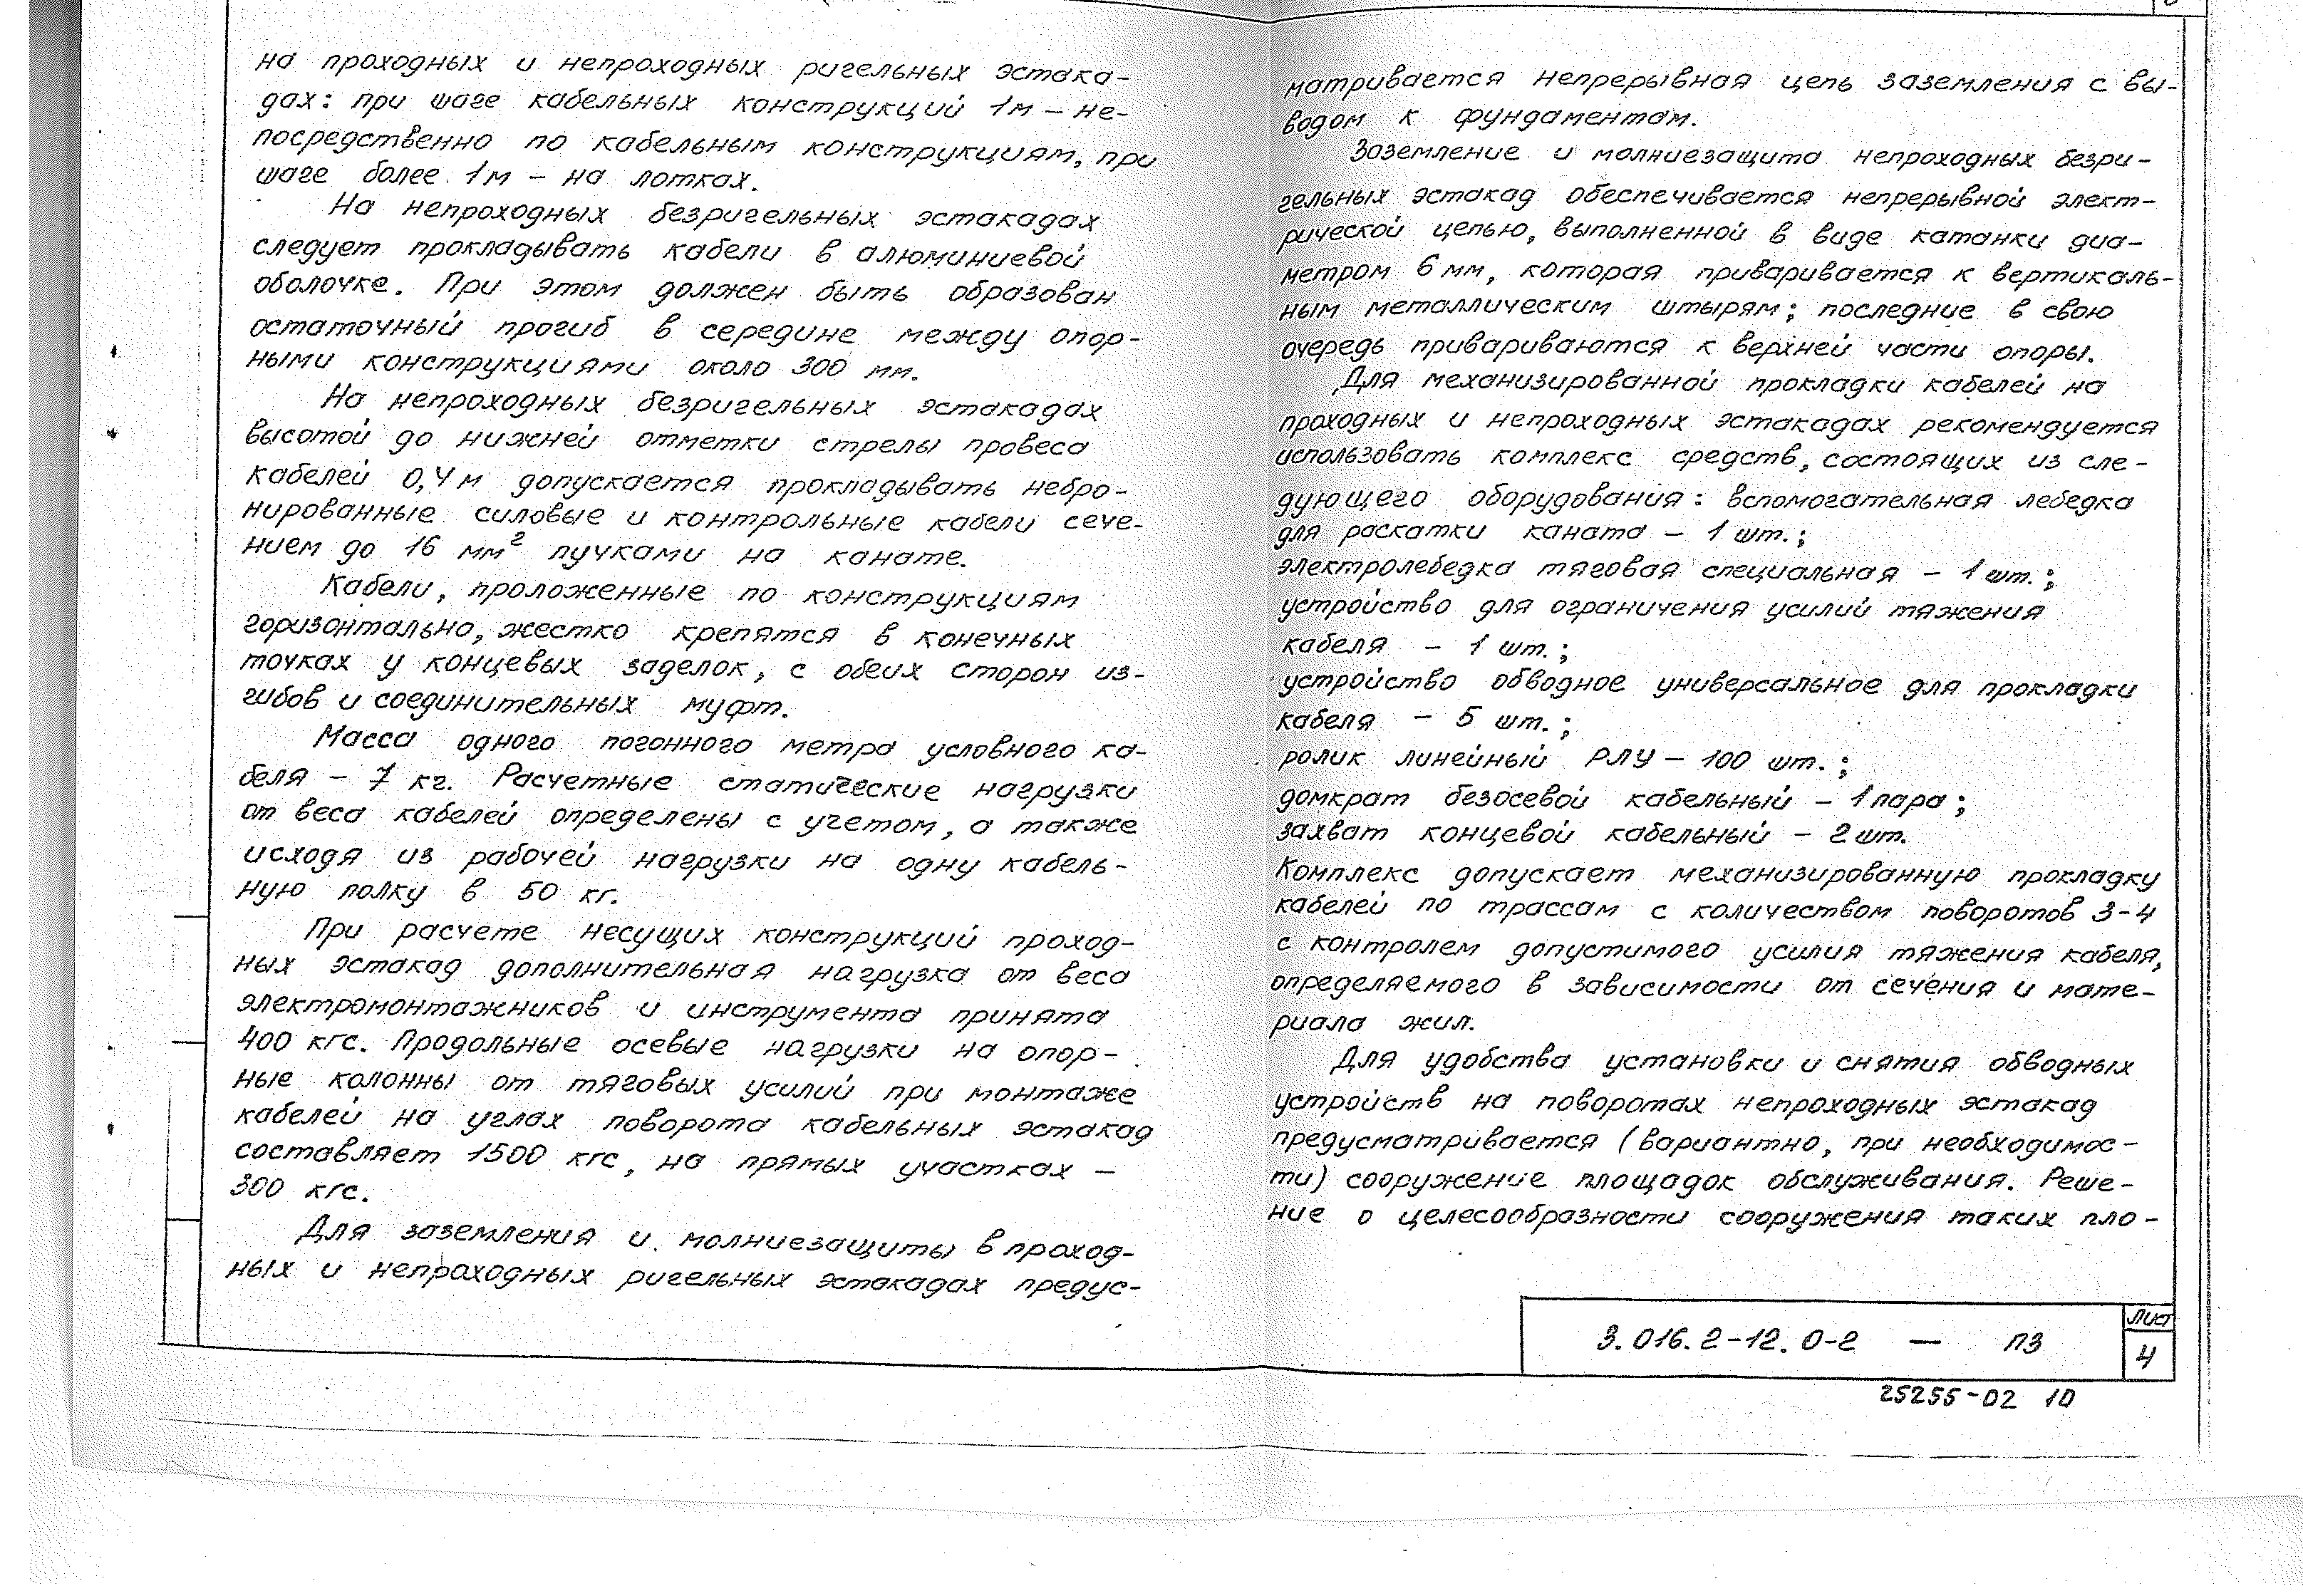 на проходных и непроходных ригельных эстака-
дах: при шаге кабельных конструкций 1м – не-
посредственно по кабельным конструкциям, при
шаге более 1м – на лотках.
На непроходных безригельных эстакадах
следует прокладывать кабели в алюминиевой
оболочке. При этом должен быть образован
остаточный прогиб в середине между опор-
ными конструкциями около 300 мм.
На непроходных безригельных эстакадах
высотой до нижней отметки стрелы провеса
кабелей 0,4м допускается прокладывать небро-
нированные силовые и контрольные кабели сече-
нием до 16 мм² пучками на канате.
Кабели, проложенные по конструкциям
горизонтально, жестко крепятся в конечных
точках у концевых заделок, с обеих сторон из-
гибов и соединительных муфт.
Масса одного погонного метра условного ка-
беля – 7 кг. Расчетные статические нагрузки
от веса кабелей определены с учетом, а также
исходя из рабочей нагрузки на одну кабель-
ную полку в 50 кг.
При расчете несущих конструкций проход-
ных эстакад дополнительная нагрузка от веса
электромонтажников и инструмента принята
400 кгс. Продольные осевые нагрузки на опор-
ные колонны от тяговых усилий при монтаже
кабелей на углах поворота кабельных эстакад
составляет 1500 кгс, на прямых участках –
300 кгс.
Для заземления и молниезащиты в проход-
ных и непроходных ригельных эстакадах предус-
матривается непрерывная цепь заземления с вы-
водом к фундаментам.
Заземление и молниезащита непроходных безри-
гельных эстакад обеспечивается непрерывной элект-
рической цепью, выполненной в виде катанки диа-
метром 6мм, которая приваривается к вертикаль-
ным металлическим штырям; последние в свою
очередь привариваются к верхней части опоры.
Для механизированной прокладки кабелей на
проходных и непроходных эстакадах рекомендуется
использовать комплекс средств, состоящих из сле-
дующего оборудования: вспомогательная лебедка
для раскатки каната – 1 шт.;
электролебедка тяговая специальная – 1 шт.;
устройство для ограничения усилий тяжения
кабеля – 1 шт.;
устройство обводное универсальное для прокладки
кабеля – 5 шт.;
ролик линейный РЛУ – 100 шт.;
домкрат безосевой кабельный – 1 пара;
захват концевой кабельный – 2 шт.
Комплекс допускает механизированную прокладку
кабелей по трассам с количеством поворотов 3-4
с контролем допустимого усилия тяжения кабеля,
определяемого в зависимости от сечения и мате-
риала жил.
Для удобства установки и снятия обводных
устройств на поворотах непроходных эстакад
предусматривается (вариантно, при необходимос-
ти) сооружение площадок обслуживания. Реше-
ние о целесообразности сооружения таких пло-
3.016.2-12.0-2 – ПЗ
Лист
4
25255-02 10